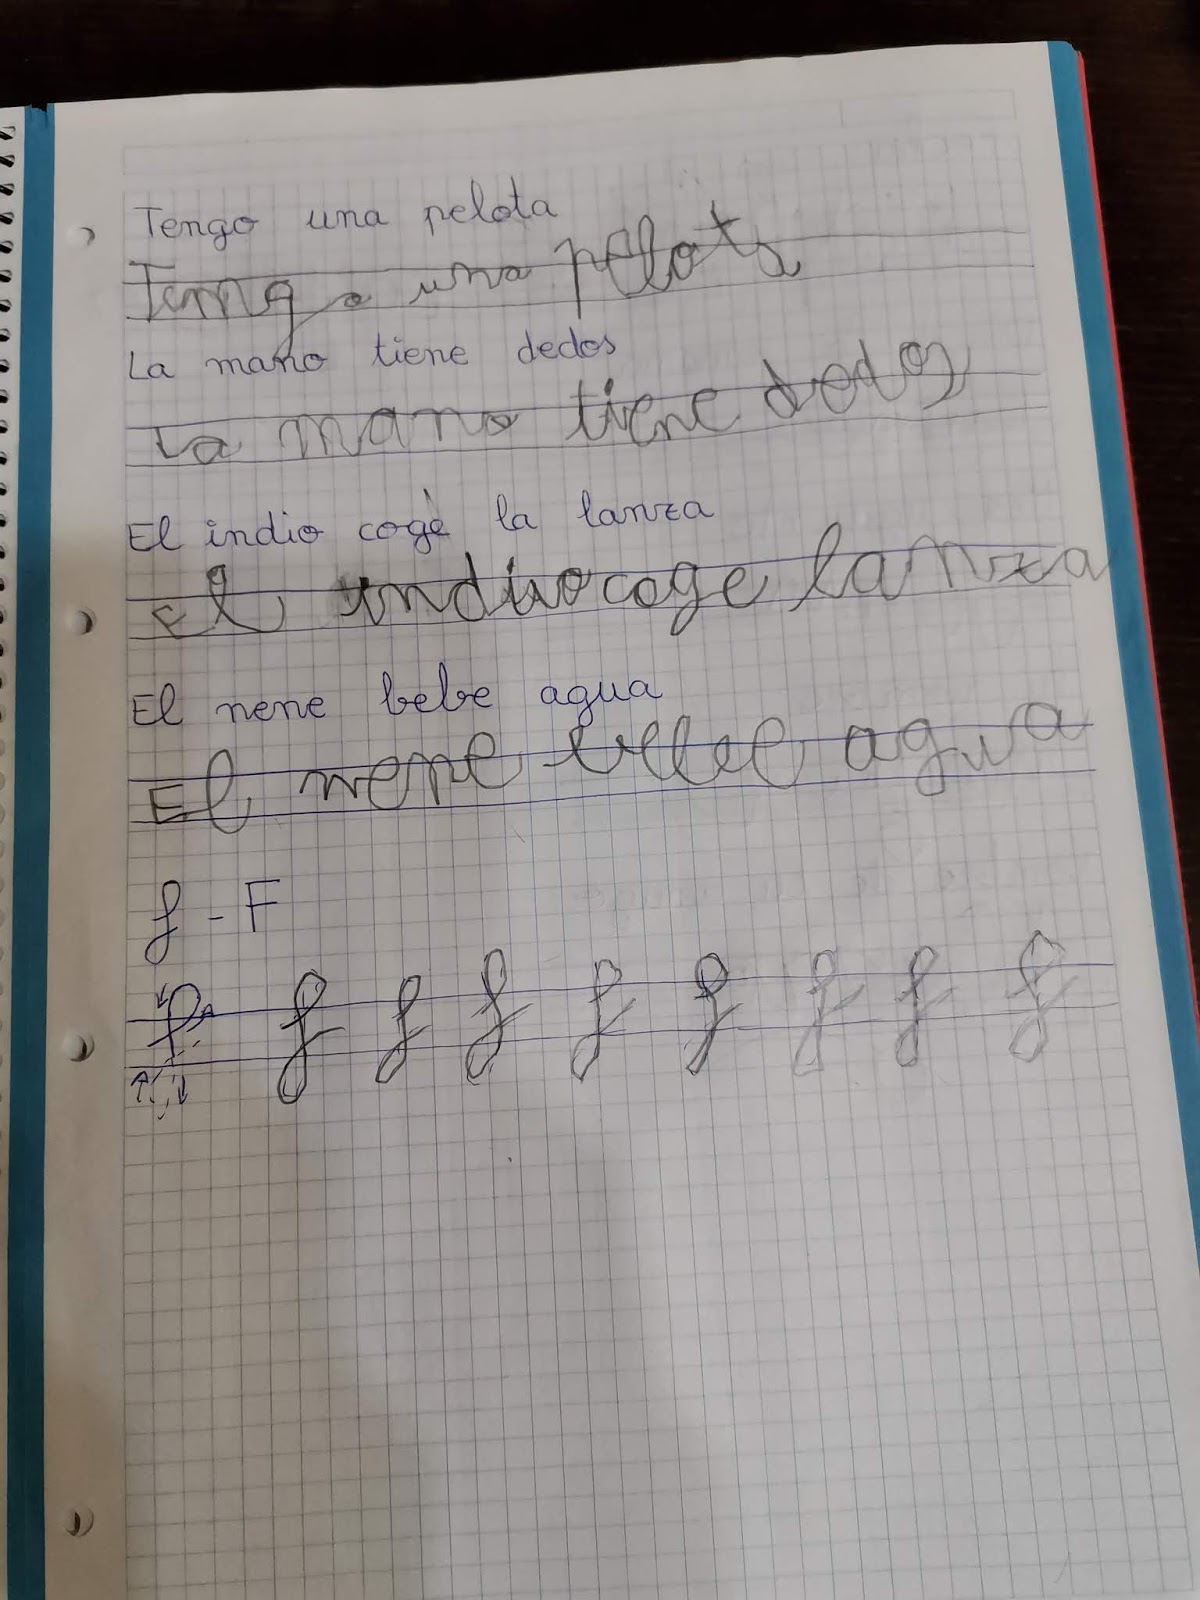 Tengo una pelota
Tengo una pelota
La mano tiene dedos
La mano tiene dedos
El indio coge la lanza
El indio coge lanza
El nene bebe agua
El nene bebe agua
f - F
f f f f f f f f f